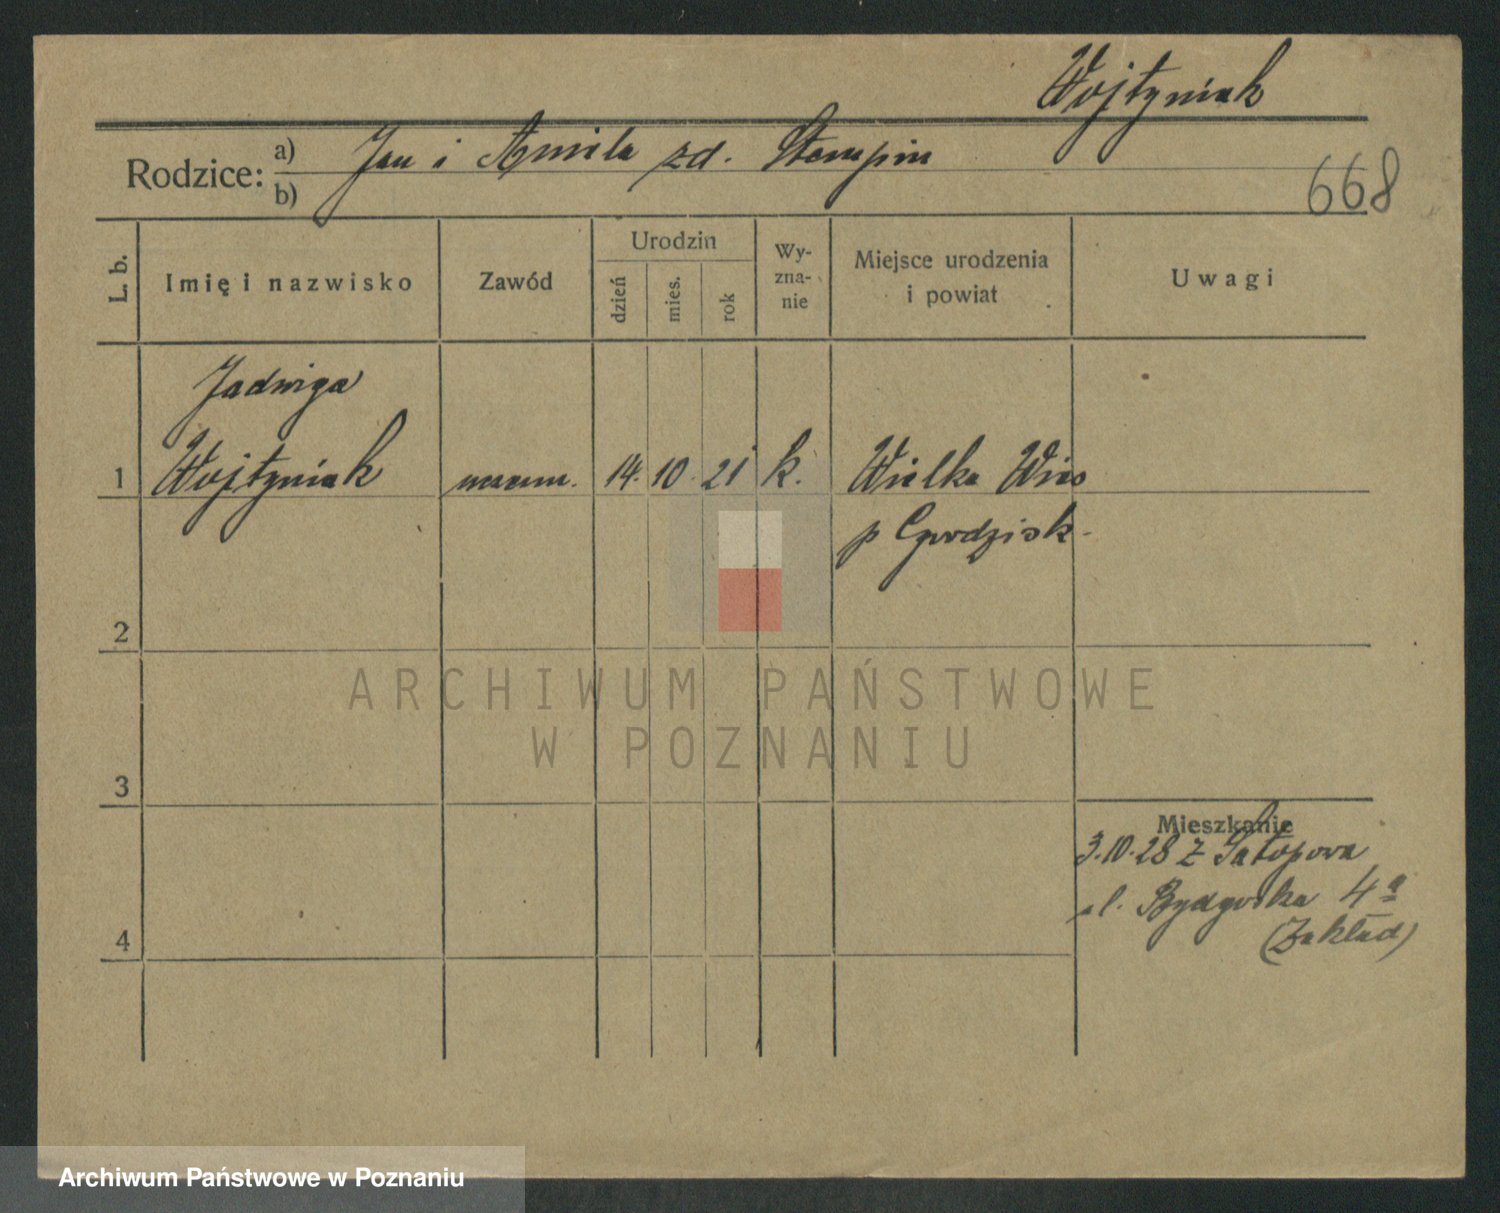 Wojtyniak
Rodzice: a) Jan i Amila zd. Stempin
b)
668
L. b.
Imię i nazwisko
Zawód
Urodzin
dzień
mies.
rok
Wy-
zna-
nie
Miejsce urodzenia
i powiat
Uwagi
Jadwiga
1 Wojtyniak uczenn. 14. 10. 21 k. Wielka Wies
p Grodzisk-
2
ARCHIWUM PAŃSTWOWE
W POZNANIU
3
Mieszkanie
3.10.28 z Satopowa
ul. Bydgoska 4a
(Zakład)
4
Archiwum Państwowe w Poznaniu